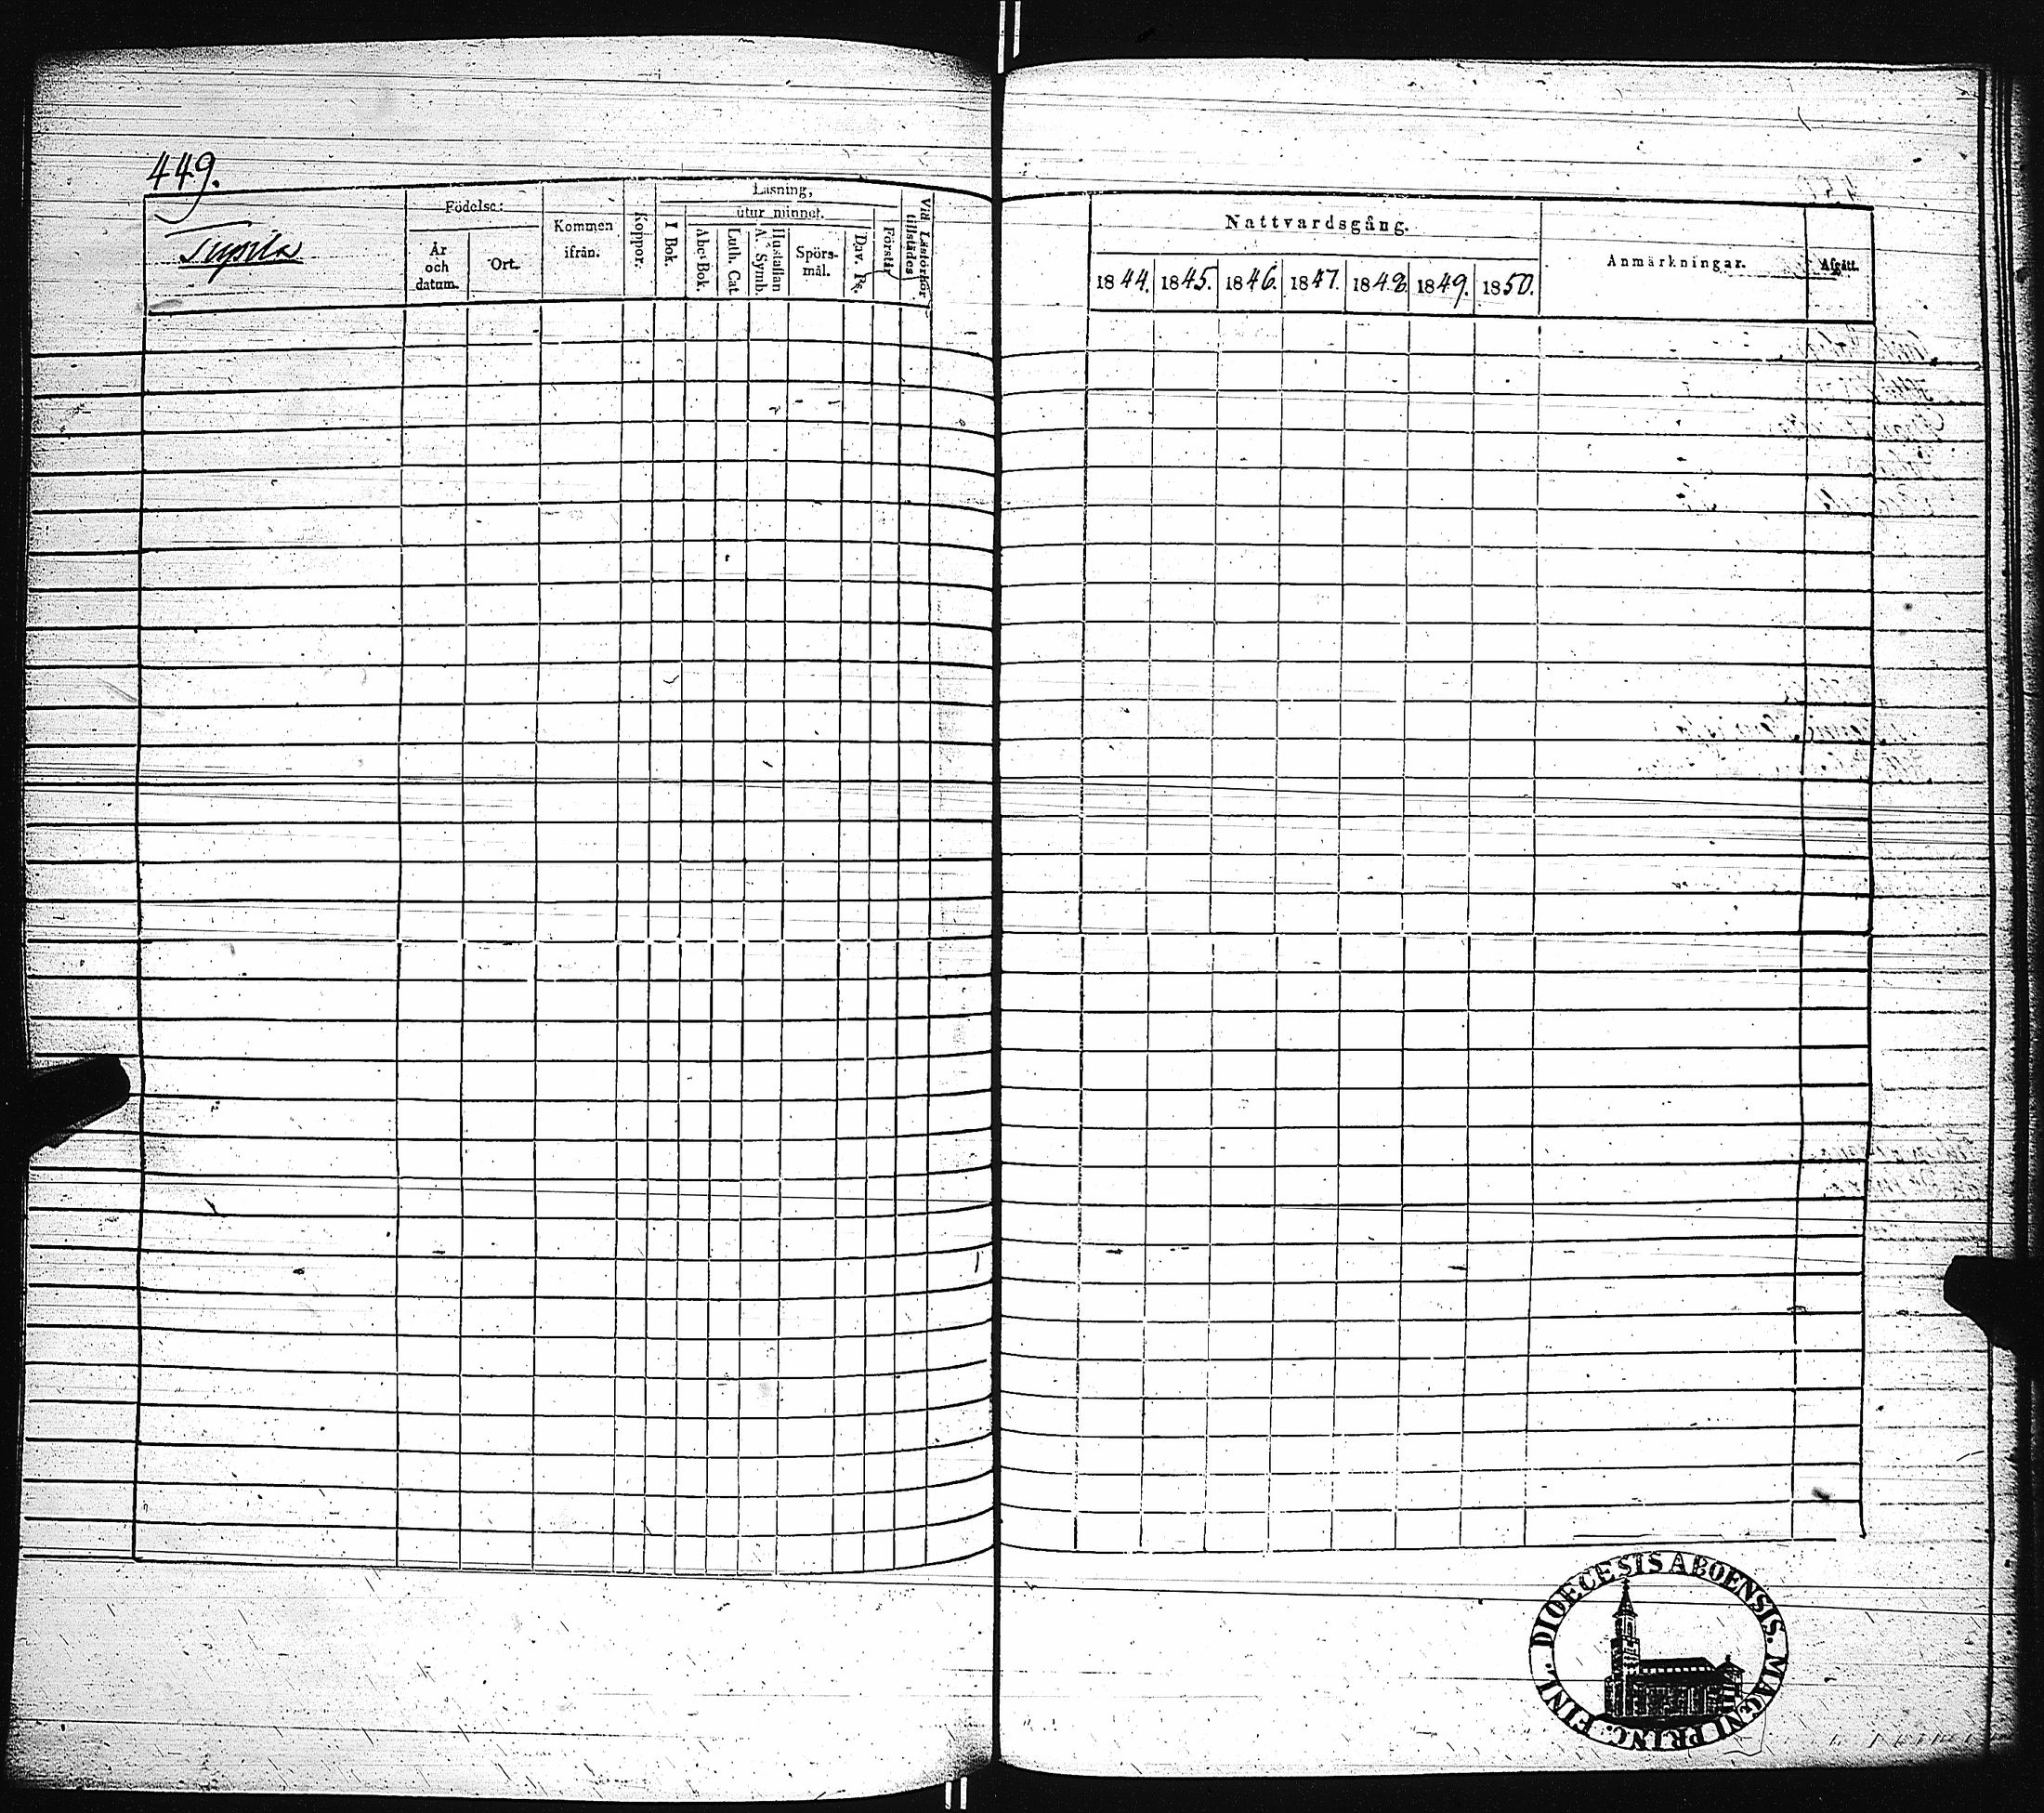 449.
Födelse:
År och datum.
Ort.
Kommen ifrån.
Koppor.
Läsning,
utur minnet.
I Bok.
Abc-Bok.
Luth. Cat.
Hustaflan A. Symb.
Spörs-
mål.
Dav. Ps.
Förstår
Vid Läsförhör tillstädes
Nattvardsgång.
1844. 1845. 1846. 1847. 1848 1849. 1850.
Anmärkningar.
Afgått.
DIOECESIS ABOENSIS. MAGNI PRINC. FINL.